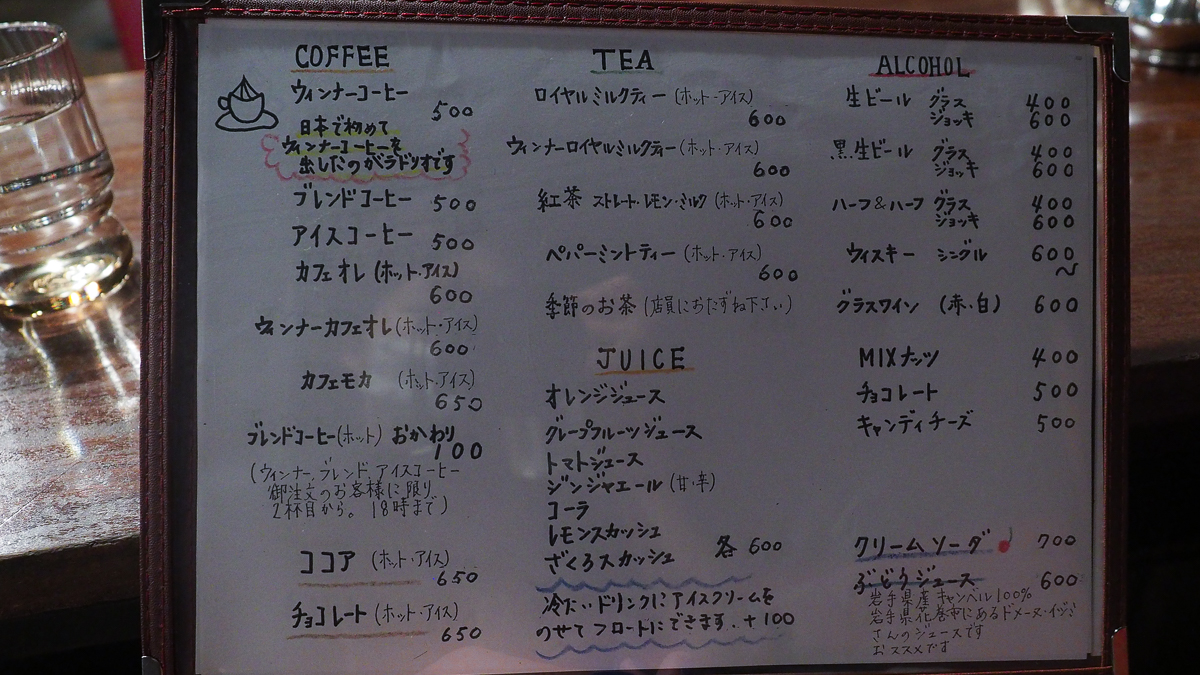 COFFEE
ウィンナーコーヒー
500
日本で初めて
ウィンナーコーヒーを
出したのがラドリオです
ブレンドコーヒー 500
アイスコーヒー 500
カフェオレ (ホット・アイス)
600
ウィンナーカフェオレ (ホット・アイス)
600
カフェモカ (ホット・アイス)
650
ブレンドコーヒー(ホット) おかわり
100
(ウィンナー、ブレンド、アイスコーヒー
御注文のお客様に限り
2杯目から。18時まで)
ココア (ホット・アイス)
650
チョコレート (ホット・アイス)
650
TEA
ロイヤルミルクティー (ホット・アイス)
600
ウィンナーロイヤルミルクティー (ホット・アイス)
600
紅茶 ストレート・レモン・ミルク (ホット・アイス)
600
ペパーミントティー (ホット・アイス)
600
季節のお茶 (店員におたずね下さい)
JUICE
オレンジジュース
グレープフルーツジュース
トマトジュース
ジンジャエール (甘・辛)
コーラ
レモンスカッシュ
ざくろスカッシュ 各 600
冷たいドリンクにアイスクリームを
のせてフロートにできます. +100
ALCOHOL
生ビール グラス 400
ジョッキ 600
黒生ビール グラス 400
ジョッキ 600
ハーフ&ハーフ グラス 400
ジョッキ 600
ウィスキー シングル 600〜
グラスワイン (赤、白) 600
MIXナッツ 400
チョコレート 500
キャンディチーズ 500
クリームソーダ 700
ぶどうジュース 600
岩手県産キャンベル100%
岩手県花巻市にあるドメーヌ・イジさ
さんのジュースです
おススメです